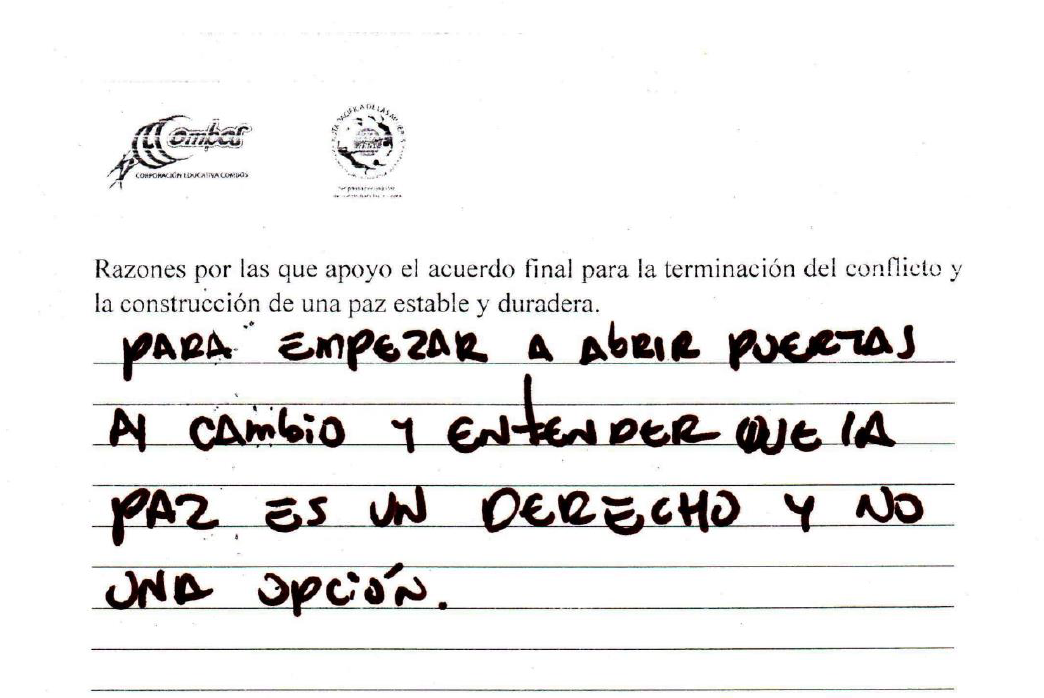 Combos
CORPORACIÓN EDUCATIVA COMBOS
Razones por las que apoyo el acuerdo final para la terminación del conflicto y
la construcción de una paz estable y duradera.
PARA EMPEZAR A AbRIR PUERTAS
Al CAmbio Y ENtENDER QUE lA
PAZ ES UN DERECHO Y NO
UNA OPCiÓN.